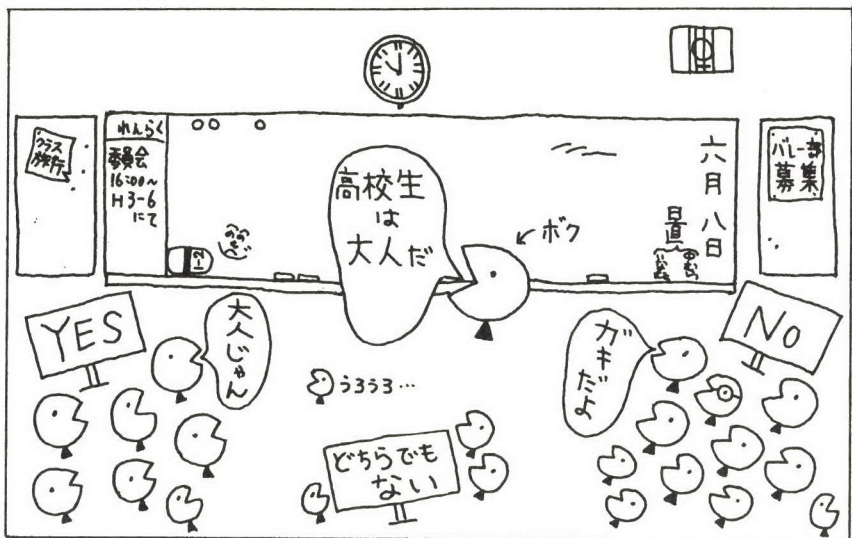 クラス
旅行
れんらく
委員会
16:00〜
H3-6
にて
1-2
高校生
は
大人だ
ボク
六月八日
日直
バレー部
募集
YES
大人じゃん
うろうろ…
どちらでも
ない
ガキだよ
NO